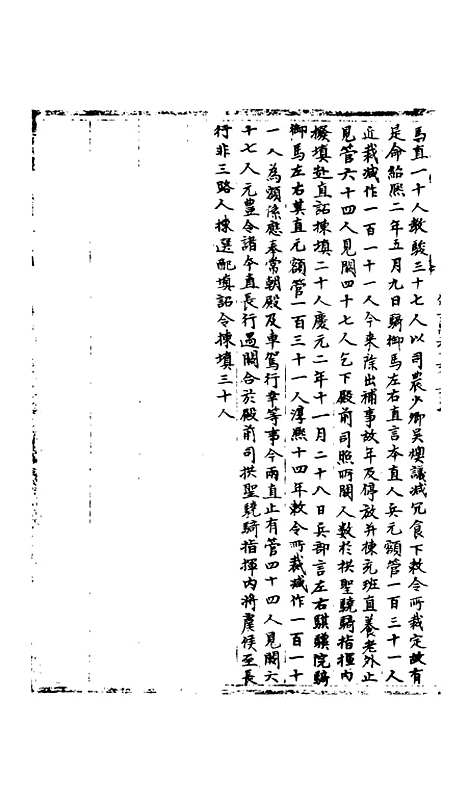 馬直一十人教駿三十七人以司農少卿吳燠議減冗食下敕令所裁定故有
是命紹熙二年五月九日騎御馬左右直言本直人兵元額管一百三十一人
近裁減作一百一十一人今來除出補事故年及停放并揀充班直養老外止
見管六十四人見闕四十七人乞下殿前司照所闕人數於拱聖驍騎指揮内
撥填赴直詔揀填二十人慶元二年十一月二十八日兵部言左右騏驥院騎
御馬左右直元額管一百三十一人淳熙十四年敕令所裁減作一百一十
一人為額除應奉常朝殿及車駕行幸等事今兩直止有管四十四人見闕六
十七人元豐令諸本直長行遇闕合於殿前司拱聖驍騎指揮内將虞候至長
行非三路人揀選配填詔令揀填三十人